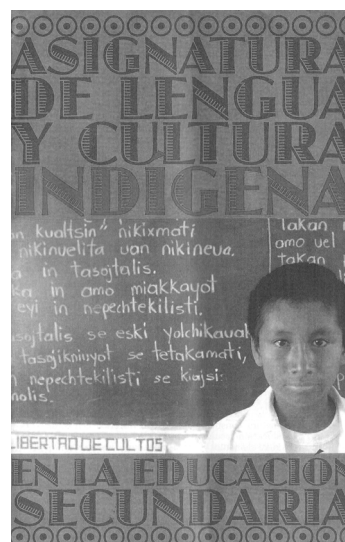 ASIGNATURA
DE LENGUA
Y CULTURA
INDIGENA
kualtsin" nikixmati
nikinuelita uan nikineua.
in tasojtalis.
in amo miakkayot
eyi in nepechtekilisti.
se eski yolchikaual
se tetakamati,
nepechtekilisti se kiajsi:
lakan
amo uel
takan
LIBERTAD DE CULTOS
EN LA EDUCACION
SECUNDARIA